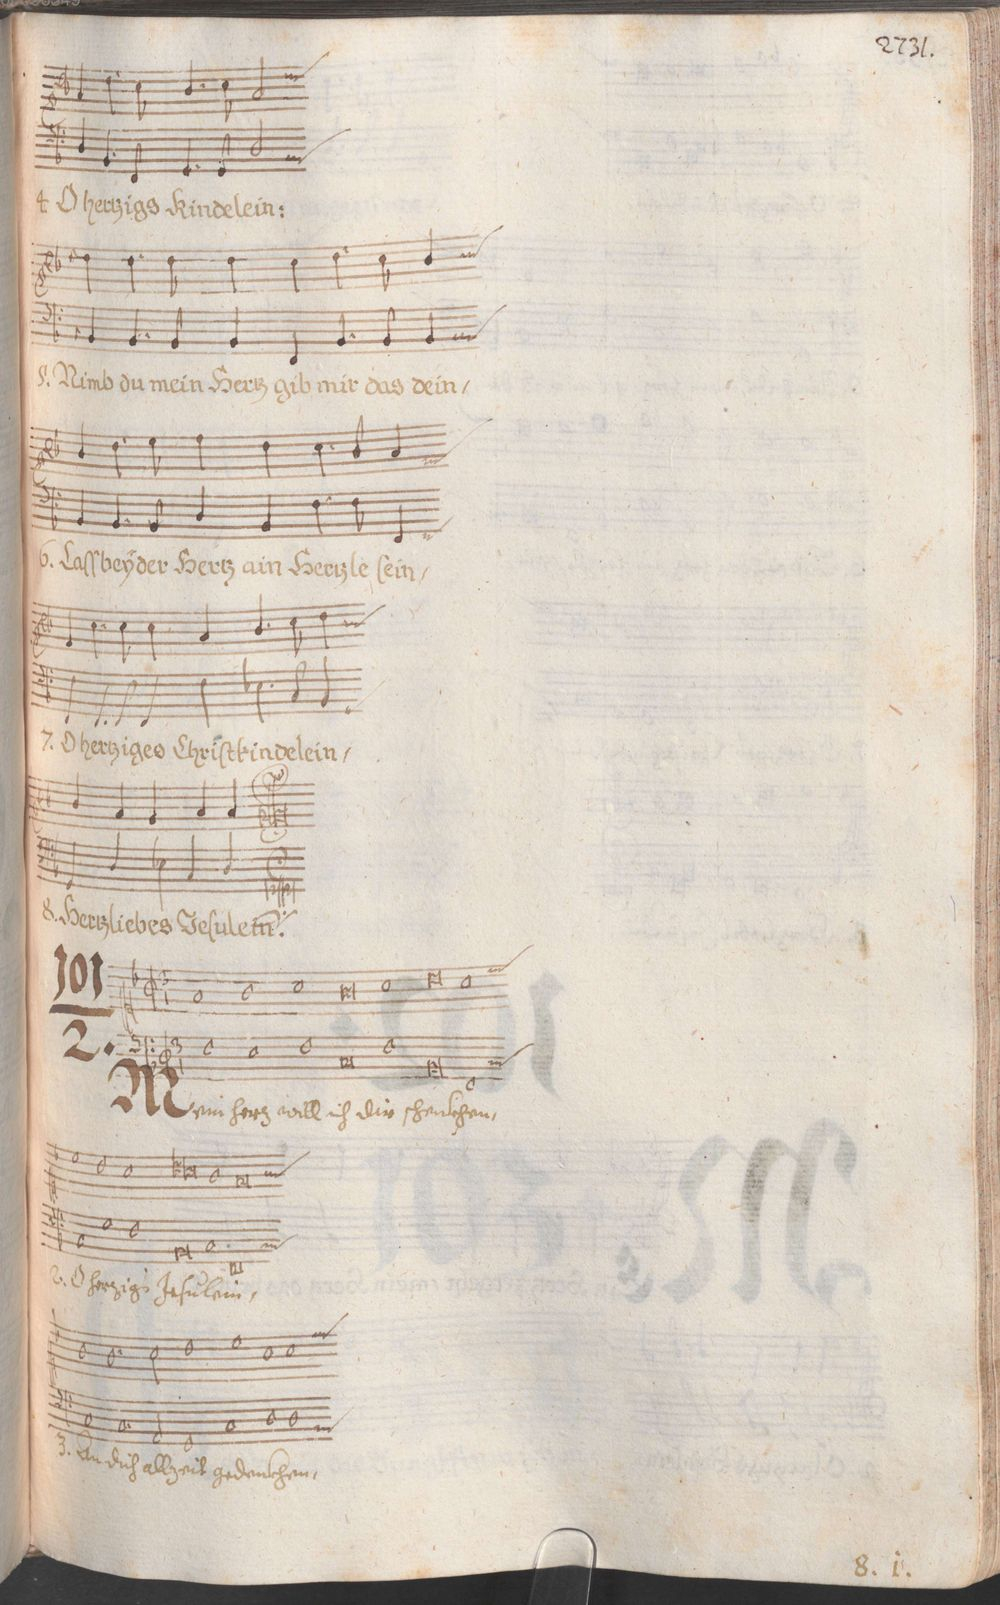 2731.
4 O hertzigs Kindelein:
5. Nimb du mein Hertz gib mir das dein,
6. Lass beÿder Hertz ain Hertzle sein,
7. O hertziges Christkindelein,
8. Hertzliebes Jesulein:
101
2.
Mein hertz will ich dir schenkhen,
2. O hertzigs Jesulein,
3. An dich allzeit gedenkhen,
8. i.